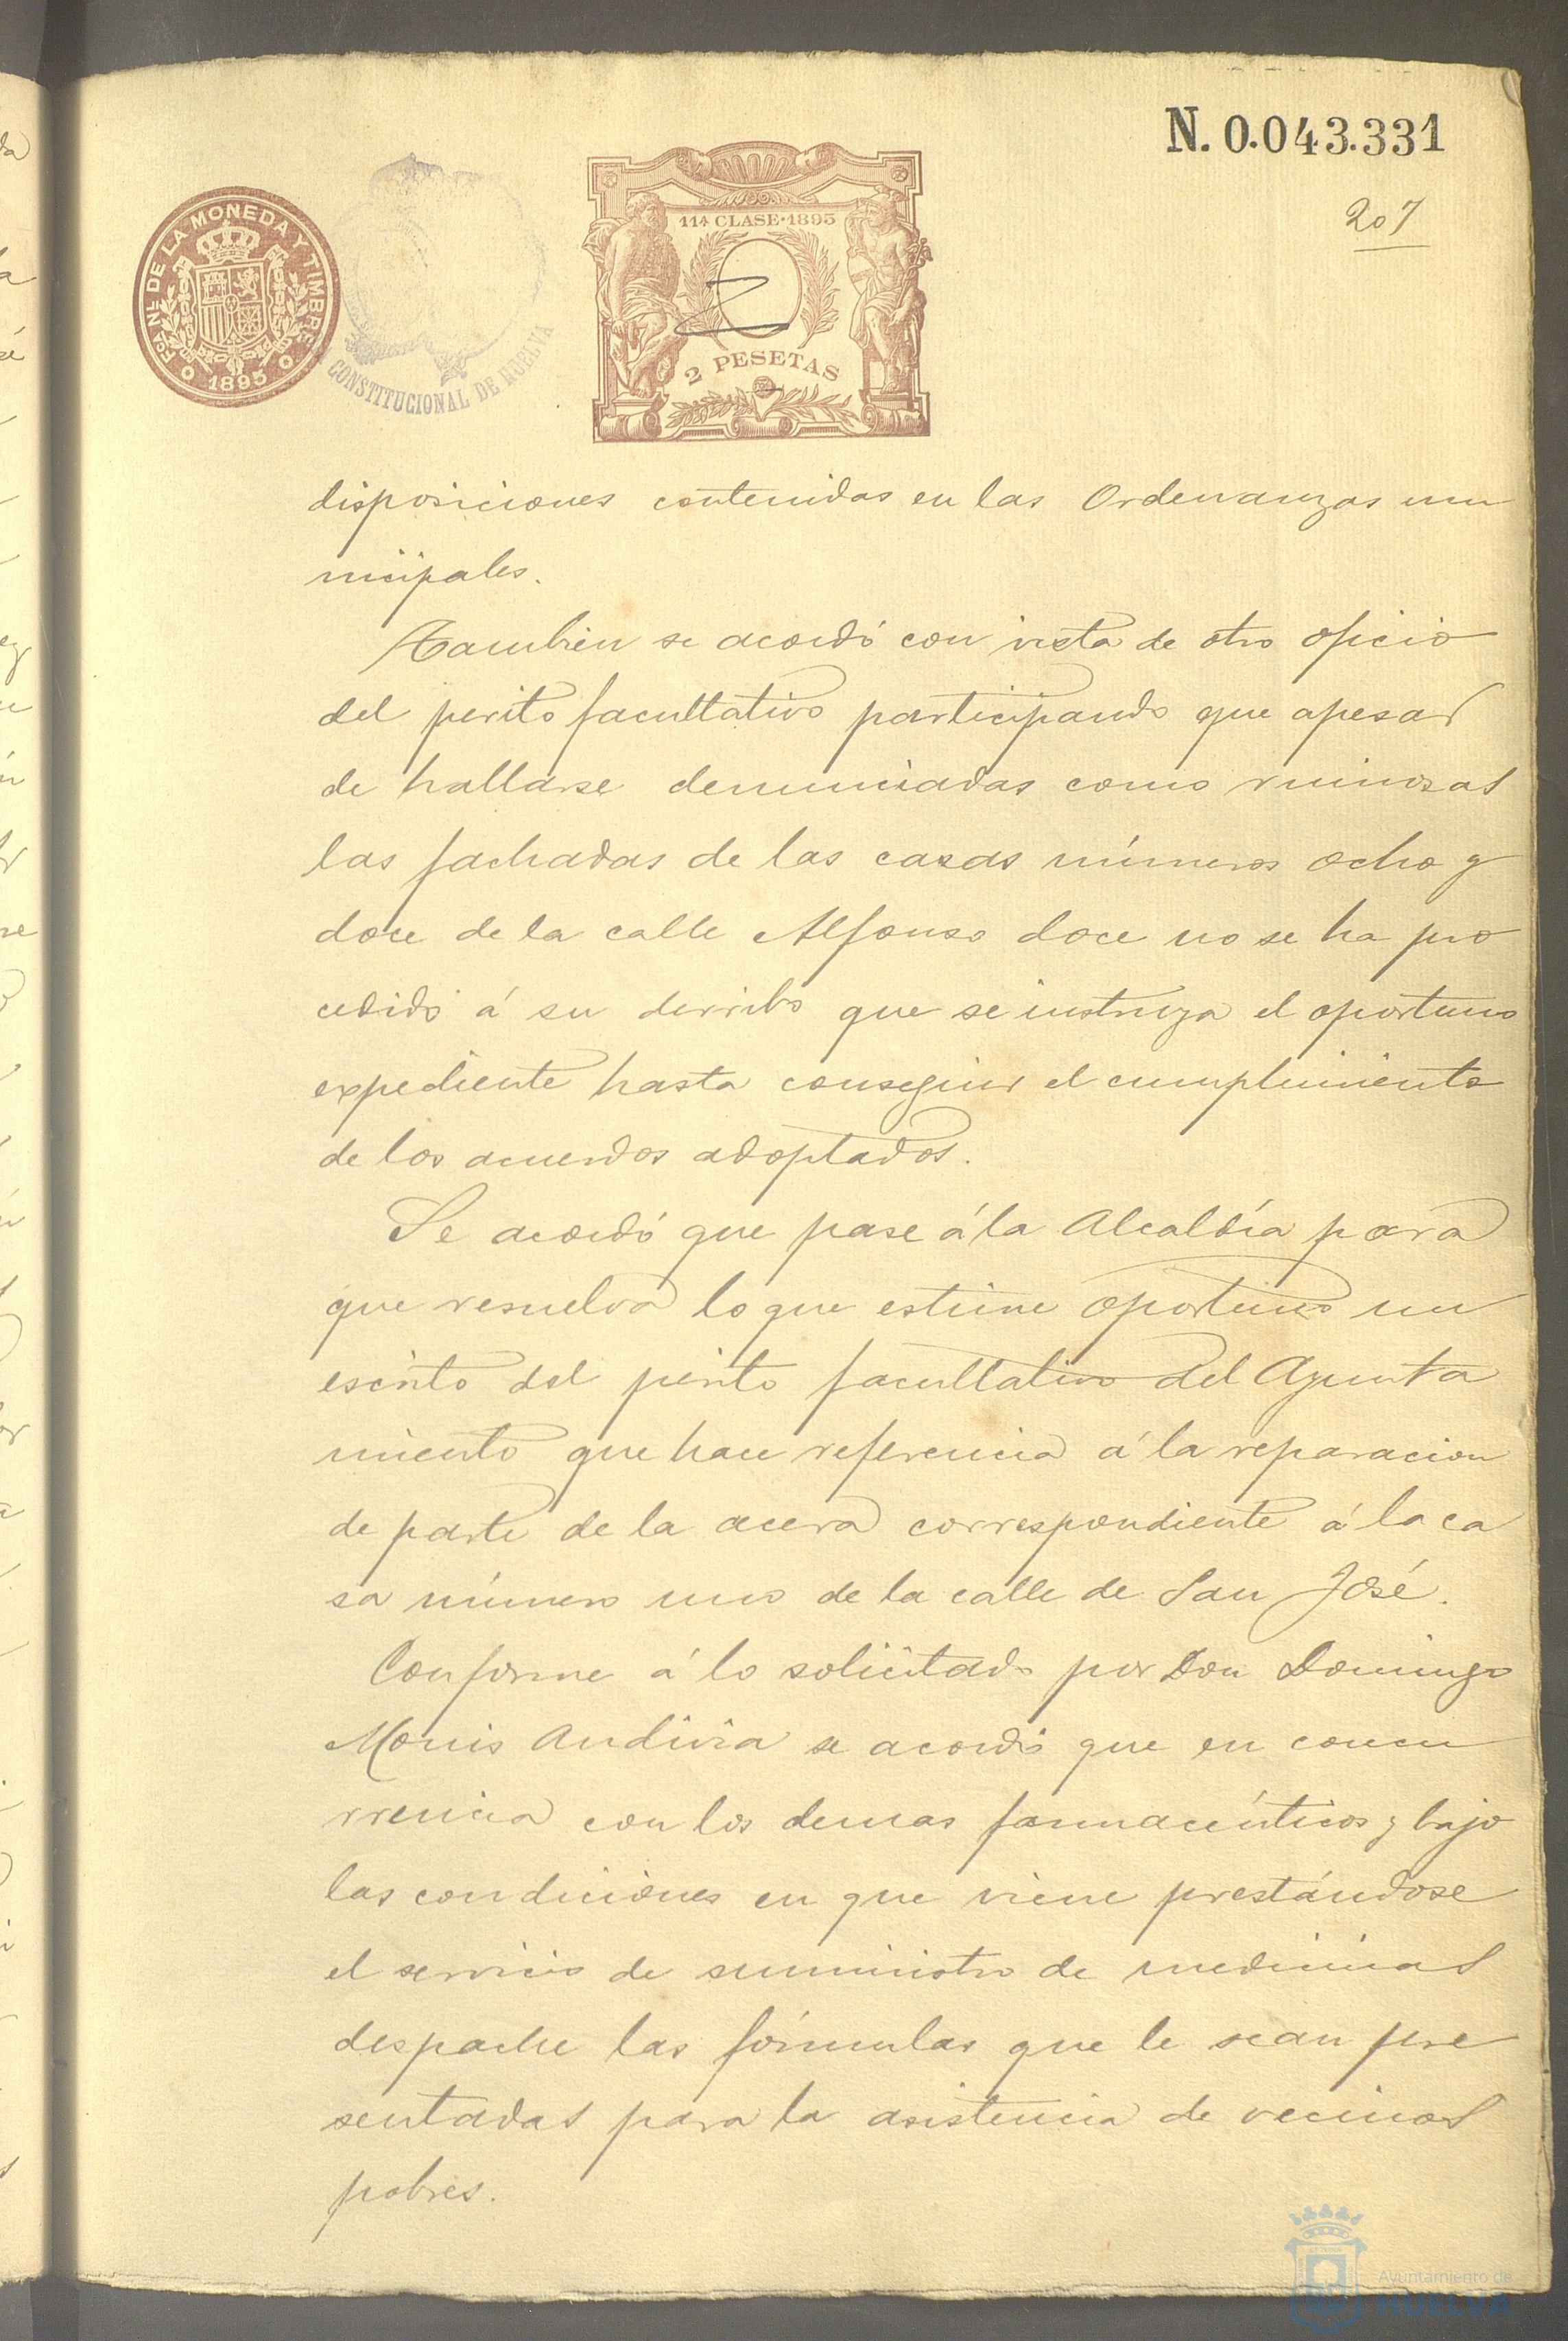 N. 0.043.331
207
FCA NL DE LA MONEDA Y TIMBRE
1895
CONSTITUCIONAL DE HUELVA
11ª CLASE·1895
2 PESETAS
disposiciones contenidas en las Ordenanzas mu
nicipales.
Tambien se acordó con vista de otro oficio
del perito facultativo participando que apesar
de hallarse denunciadas como ruinosas
las fachadas de las casas números ocho y
doce de la calle Alfonso doce no se ha pro
cedido á su derribo que se instruya el oportuno
expediente hasta conseguir el cumplimiento
de los acuerdos adoptados.
Se acordó que pase á la Alcaldía para
que resuelva lo que estime oportuno un
escrito del perito facultativo del Ayunta
miento que hace referencia á la reparacion
de parte de la acera correspondiente á la ca
sa número uno de la calle de San José.
Conforme á lo solicitado por Don Domingo
Monis Andivia se acordó que en concu
rrencia con los demas farmacéuticos y bajo
las condiciones en que viene prestándose
el servicio de suministro de medicinas
despache las fórmulas que le sean pre
sentadas para la asistencia de vecinos
pobres.
Ayuntamiento de
HUELVA